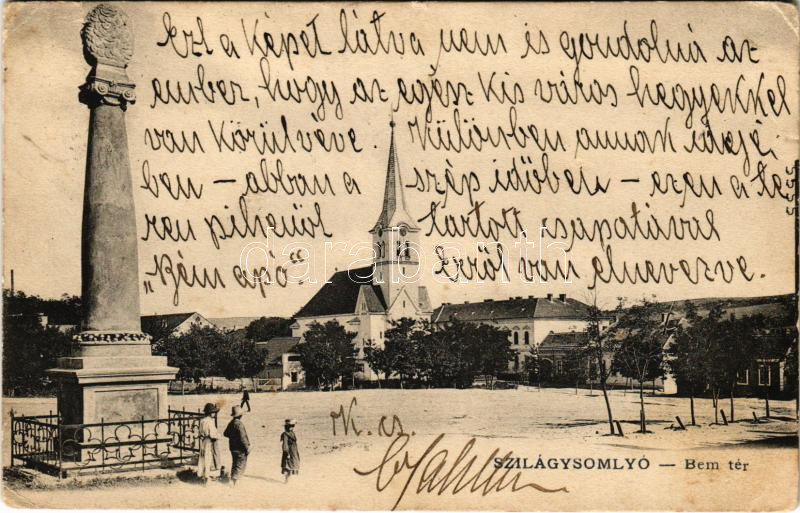 Ezt a képet látva nem is gondolná az
ember, hogy az egész kis város hegyekkel
van körülvéve. Különben annak idejé-
ben – abban a szép időben – ezen a té-
ren pihenőt tartott csapatával
„Bem apó“. Erről van elnevezve.
5555
darabanth.com
K. cs.
SZILÁGYSOMLYÓ — Bem tér